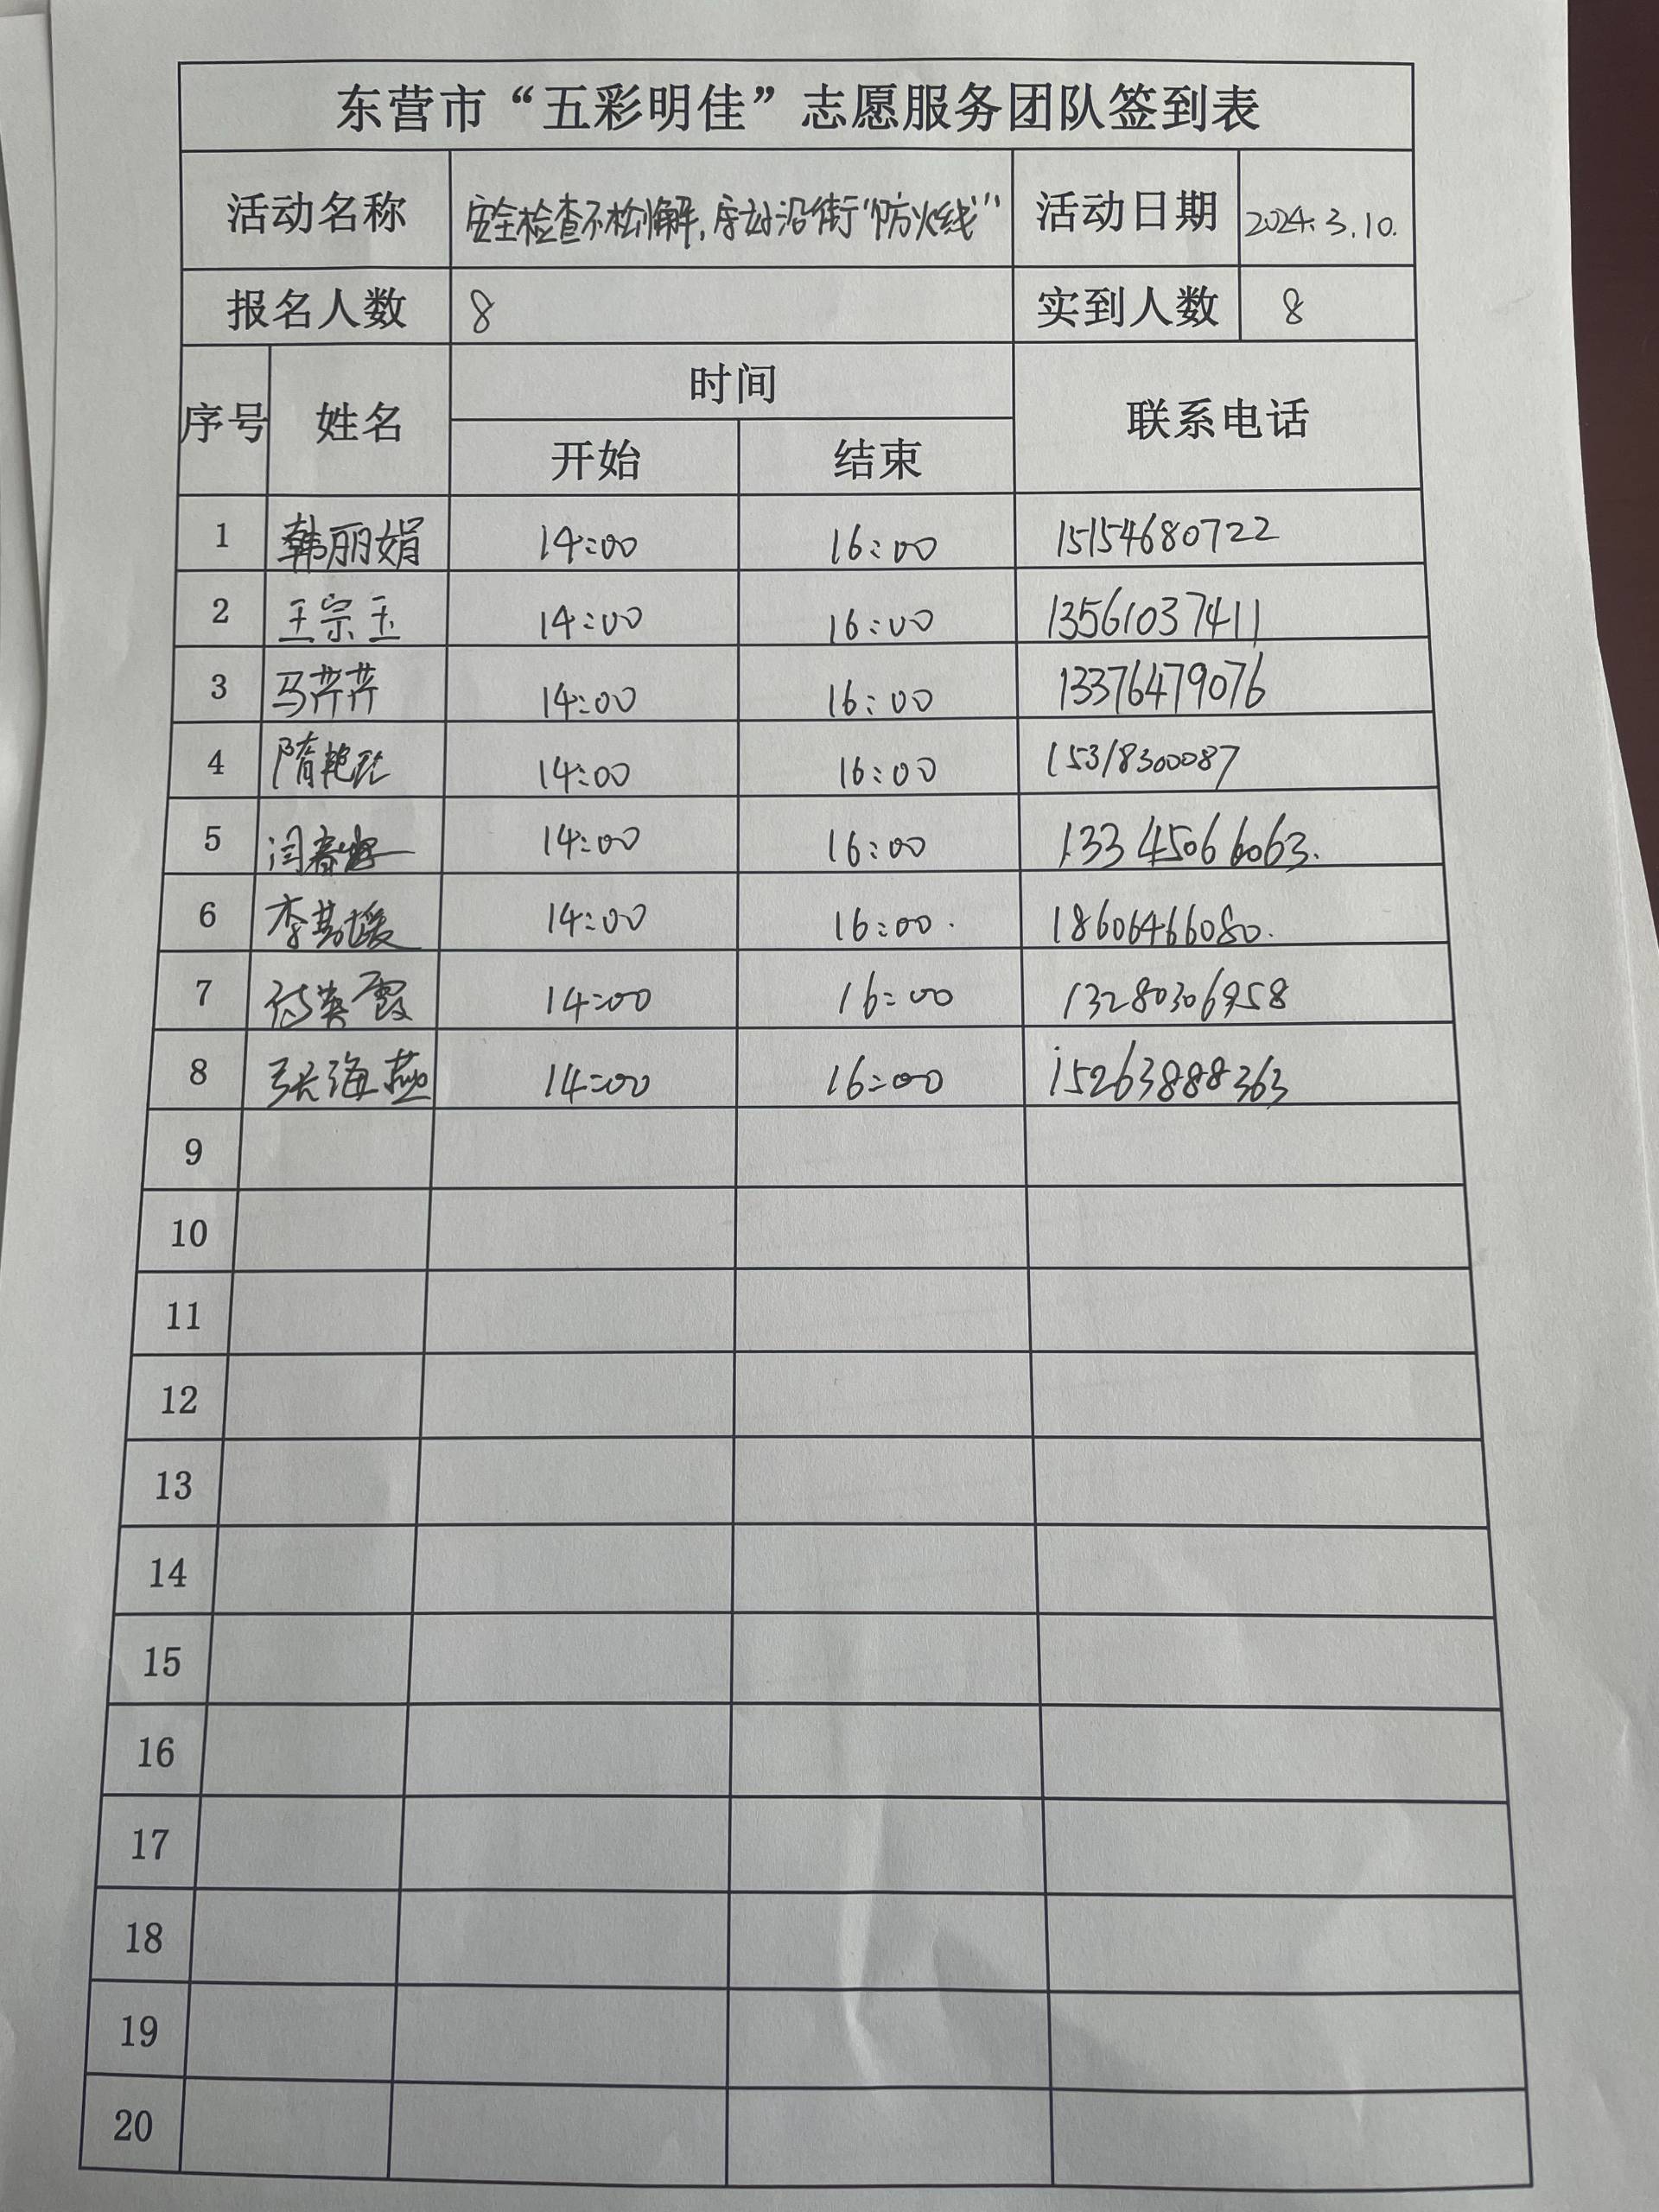 东营市“五彩明佳”志愿服务团队签到表
活动名称 安全检查不松懈,守好沿街“防火线” 活动日期 2024.3.10.
报名人数 8 实到人数 8
序号 姓名 时间 联系电话
开始 结束
1 韩丽娟 14:00 16:00 15154680722
2 王宗玉 14:00 16:00 13561037411
3 马芹芹 14:00 16:00 13376479076
4 隋艳 14:00 16:00 15318300087
5 闫春 14:00 16:00 13345066063.
6 李 媛 14:00 16:00. 18606466080.
7 英霞 14:00 16:00 13280306958
8 张海燕 14:00 16:00 15263888363
9
10
11
12
13
14
15
16
17
18
19
20